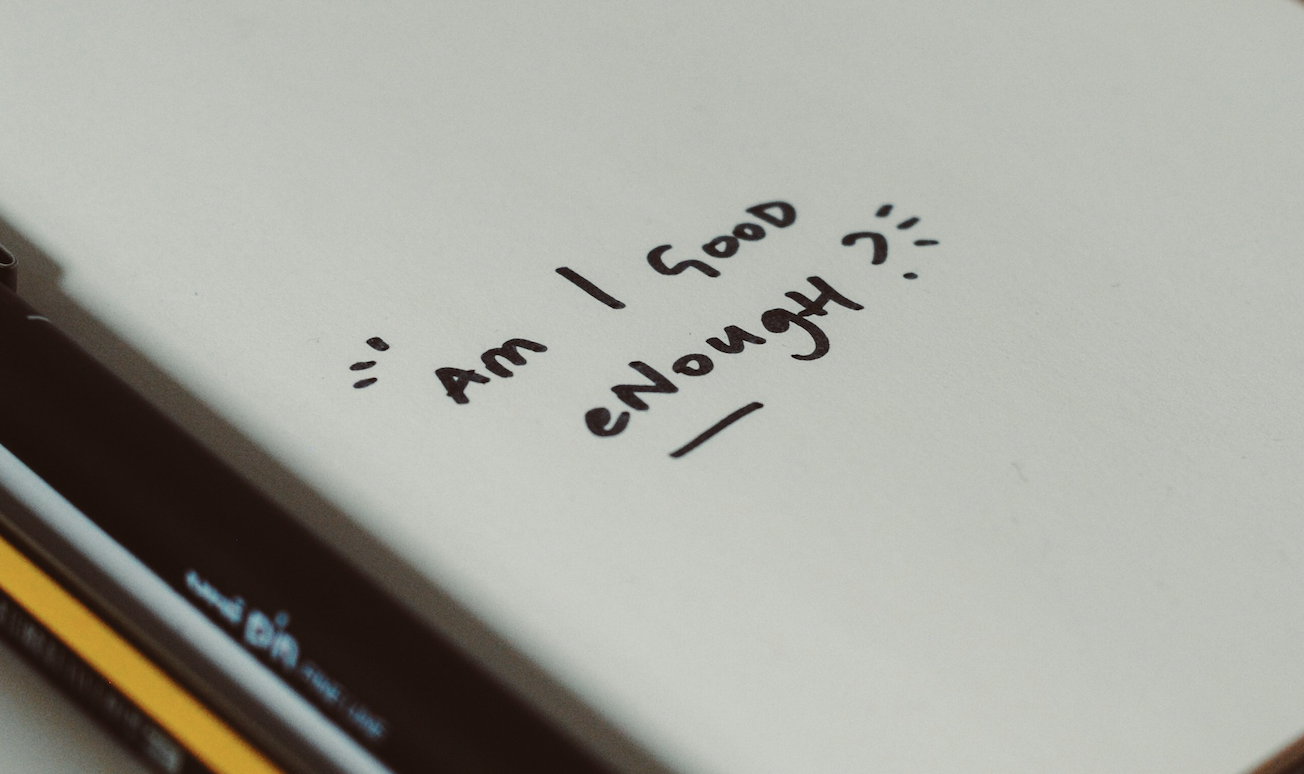 Am I GooD
eNougH?
uni pin FINE LINE